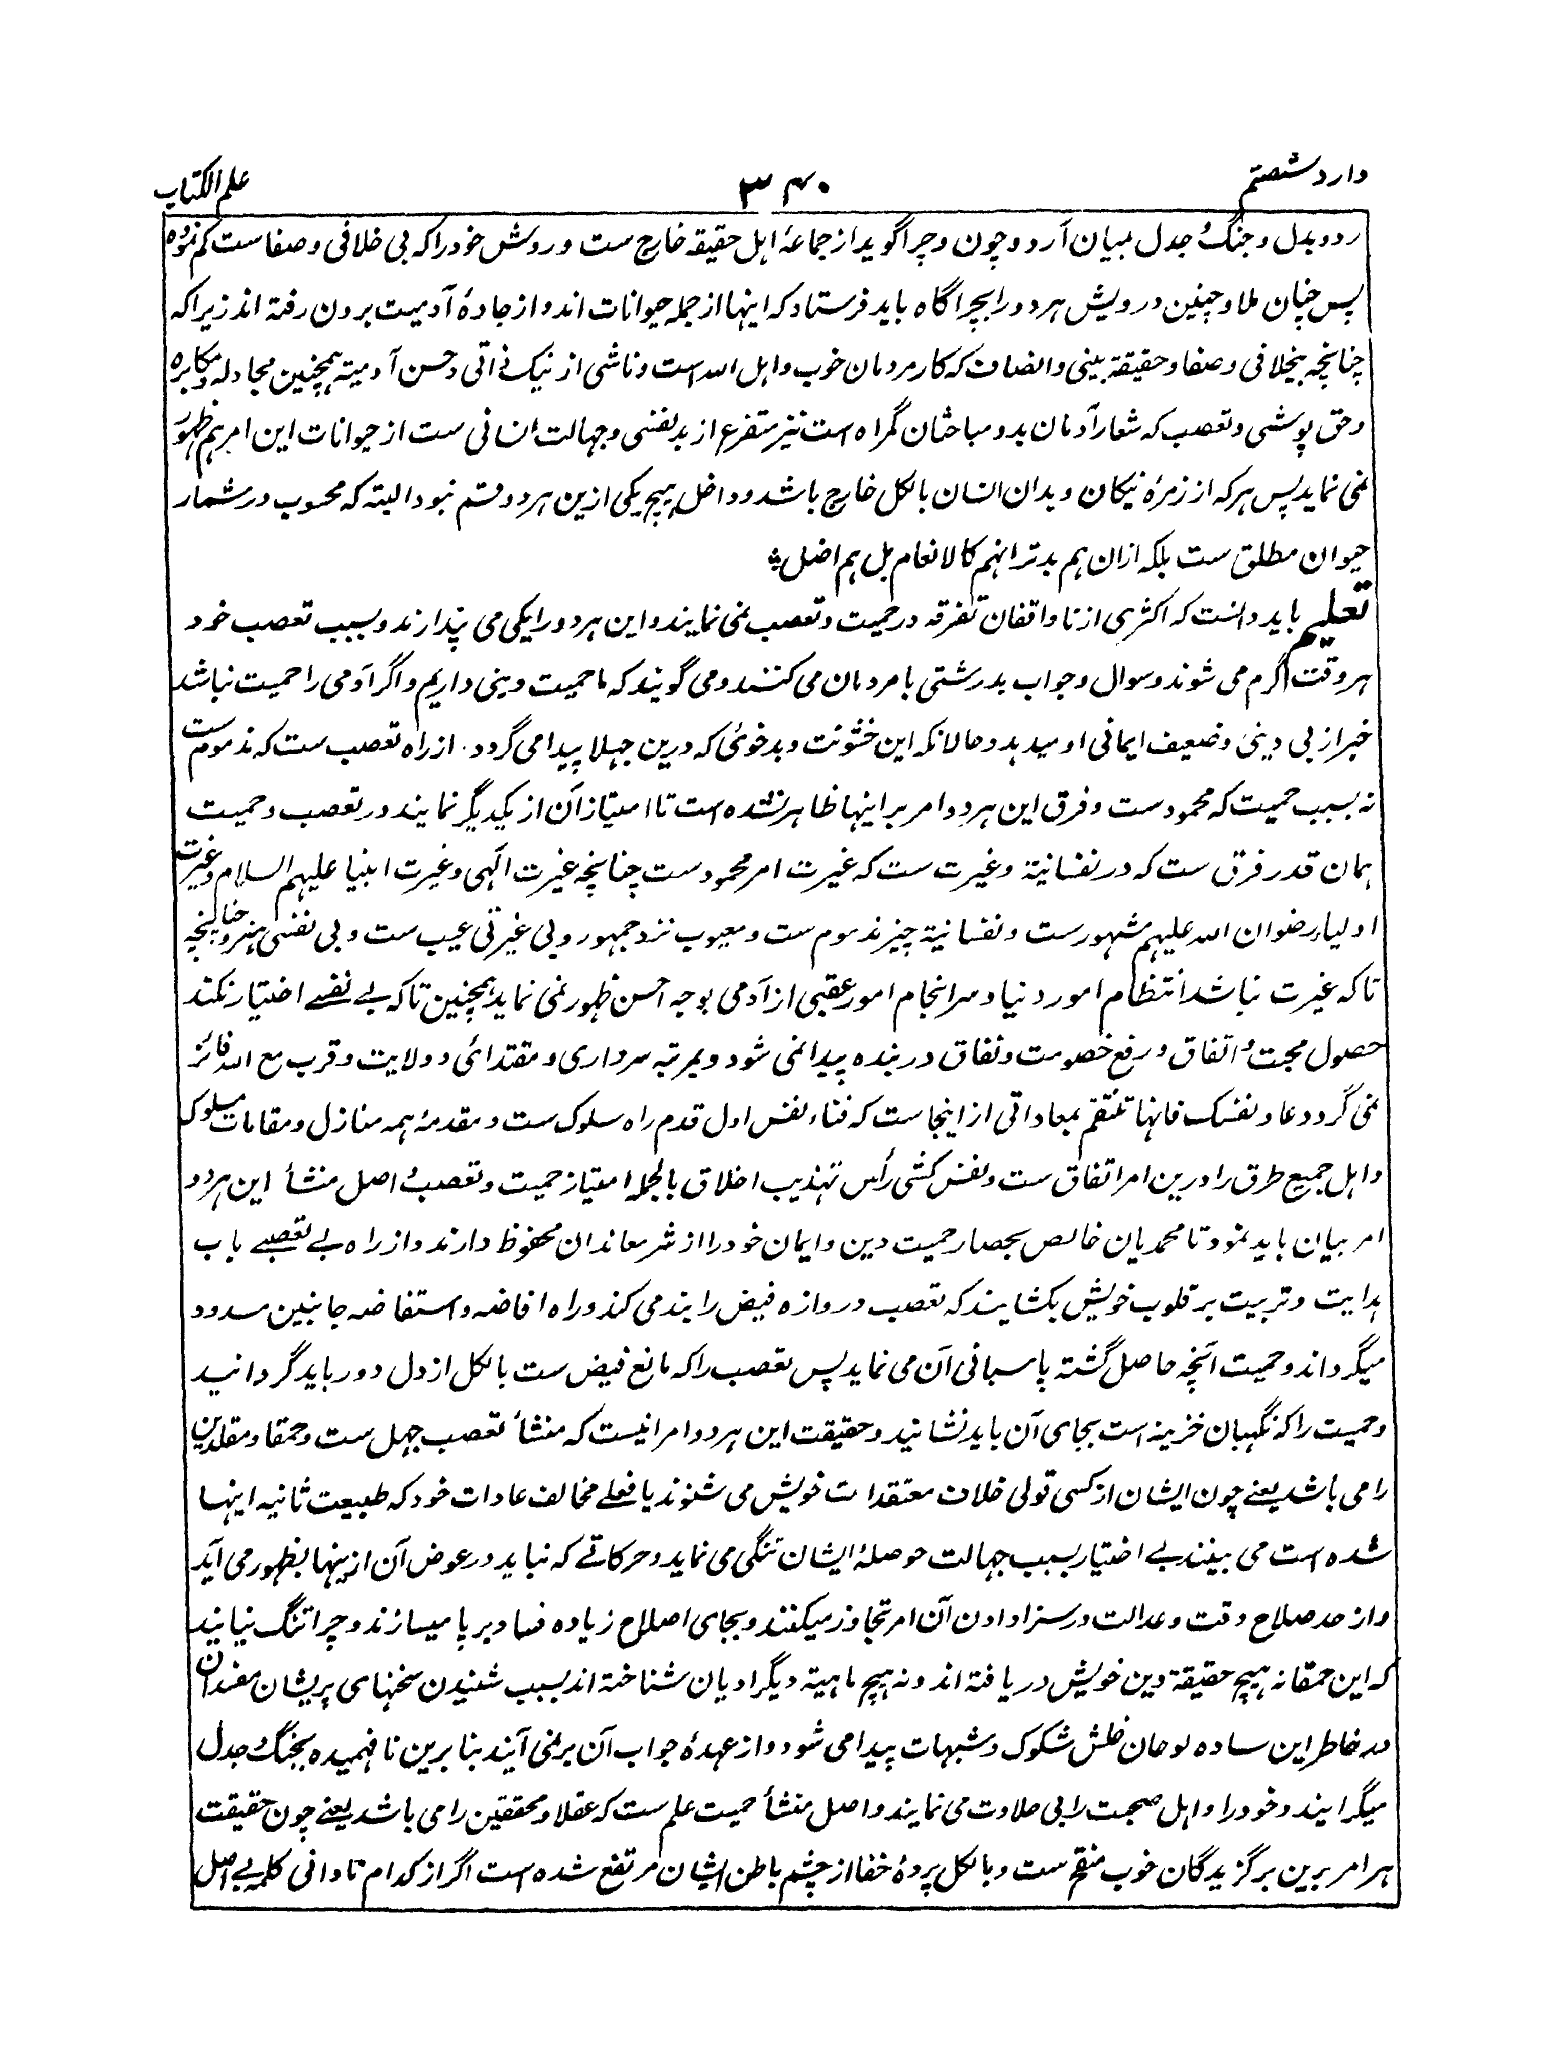 وارد شصتم
۳۴۰
علم الکتاب
رد و بدل و جنگ و جدل بمیان آرد و چون و چرا گوید از جماعهٔ اہل حقیقة خارج ست و روش خود را که بی خلافی و صفاست گم نموده
پس چنان ملا و چنین درویش ہر دو را بچراگاه باید فرستاد که اینہا از جمله حیوانات اند و از جادهٔ آدمیت برون رفته اند زیرا که
چنانچه بیخلافی و صفا و حقیقة بینی و انصاف که کار مردمان خوب و اہل الله است و ناشی از نیک ذاتی و حسن آدمیة ہمچنین مجادله و مکابره
و حق پوشی و تعصب که شعار آدمان بد و مباحثان گمراه است نیز متفرع از بدنفسی و جہالت انسانی ست از حیوانات این امر ہم ظہور
نمی نماید پس ہر که از زمرهٔ نیکان و بدان انسان بالکل خارج باشد و داخل ہیچ یکی ازین ہر دو قسم نبود البته که محسوب در شمار
حیوان مطلق ست بلکه ازان ہم بدتر انہم کالانعام بل ہم اضل
تعلیم باید دانست که اکثری از ناواقفان تفرقه در حمیت و تعصب نمی نمایند و این ہر دو را یکی می پندارند و بسبب تعصب خود
ہر وقت گرم می شوند و سوال و جواب بدرشتی با مردمان می کنند و می گویند که ما حمیت دینی داریم و اگر آدمی را حمیت نباشد
خبر از بی دینی و ضعیف ایمانی او میدہد و حالانکه این خشونت و بدخوئی که درین جہلا پیدا می گردد از راه تعصب ست که مذموم ست
نه بسبب حمیت که محمود ست و فرق این ہر دو امر بر اینہا ظاہر نشده است تا امتیاز آن از یکدیگر نمایند در تعصب و حمیت
ہمان قدر فرق ست که در نفسانیة و غیرت ست که غیرت امر محمود ست چنانچه غیرت الٰہی و غیرت انبیا علیہم السلام و غیرت
اولیاء رضوان الله علیہم مشہور ست و نفسانیة چیز مذموم ست و معیوب نزد جمہور و بی غیرتی عیب ست و بی نفسی ہنر و چنانچه
تا که غیرت نباشد انتظام امور دنیا و سرانجام امور عقبی از آدمی بوجه احسن ظہور نمی نماید ہمچنین تا که بے نفسے اختیار نکند
حصول محبت و اتفاق و رفع خصومت و نفاق در بنده پیدا نمی شود و بمرتبه سرداری و مقتدائی و ولایت و قرب مع الله فائز
نمی گردد عاد نفسک فانہا تنتقم بمعاداتی از اینجاست که فناء نفس اول قدم راه سلوک ست و مقدمهٔ ہمه منازل و مقامات سلوک
و اہل جمیع طرق را درین امر اتفاق ست و نفس کشی رأس تہذیب اخلاق بالجمله امتیاز حمیت و تعصب و اصل منشأ این ہر دو
امر بیان باید نمود تا محمدیان خالص بحصار حمیت دین و ایمان خود را از شر معاندان محفوظ دارند و از راه بے تعصبے باب
ہدایت و تربیت بر قلوب خویش بکشایند که تعصب دروازه فیض را بند می کند و راه افاضه و استفاضه جانبین مسدود
میگرداند و حمیت آنچه حاصل گشته پاسبانی آن می نماید پس تعصب را که مانع فیض ست بالکل از دل دور باید گردانید
و حمیت را که نگہبان خزینه است بجای آن باید نشانید و حقیقت این ہر دو امر اینست که منشأ تعصب جہل ست و حمقا و مقلدین
را می باشد یعنے چون ایشان از کسی قولی خلاف معتقدات خویش می شنوند یا فعلے مخالف عادات خود که طبیعت ثانیه اینہا
شده است می بینند بے اختیار بسبب جہالت حوصلهٔ ایشان تنگی می نماید و حرکاتے که نباید در عوض آن ازینہا بظہور می آید
و از حد صلاح وقت و عدالت در سزا دادن آن امر تجاوز میکنند و بجای اصلاح زیاده فساد برپا میسازند و چرا تنگ نیایند
که این حمقا نه ہیچ حقیقة دین خویش دریافته اند و نه ہیچ ماہیة دیگر ادیان شناخته اند بسبب شنیدن سخنہای پریشان مفسدان
در خاطر این ساده لوحان خلش شکوک و شبہات پیدا می شود و از عہدهٔ جواب آن بر نمی آیند بنا برین نافہمیده بجنگ و جدل
میگرایند و خود را و اہل صحبت را بی حلاوت می نمایند و اصل منشأ حمیت علم ست که عقلا و محققین را می باشد یعنے چون حقیقت
ہر امر برین برگزیدگان خوب منقح ست و بالکل پردهٔ خفا از چشم باطن ایشان مرتفع شده است اگر از کدام نادانی کلمه بے اصل